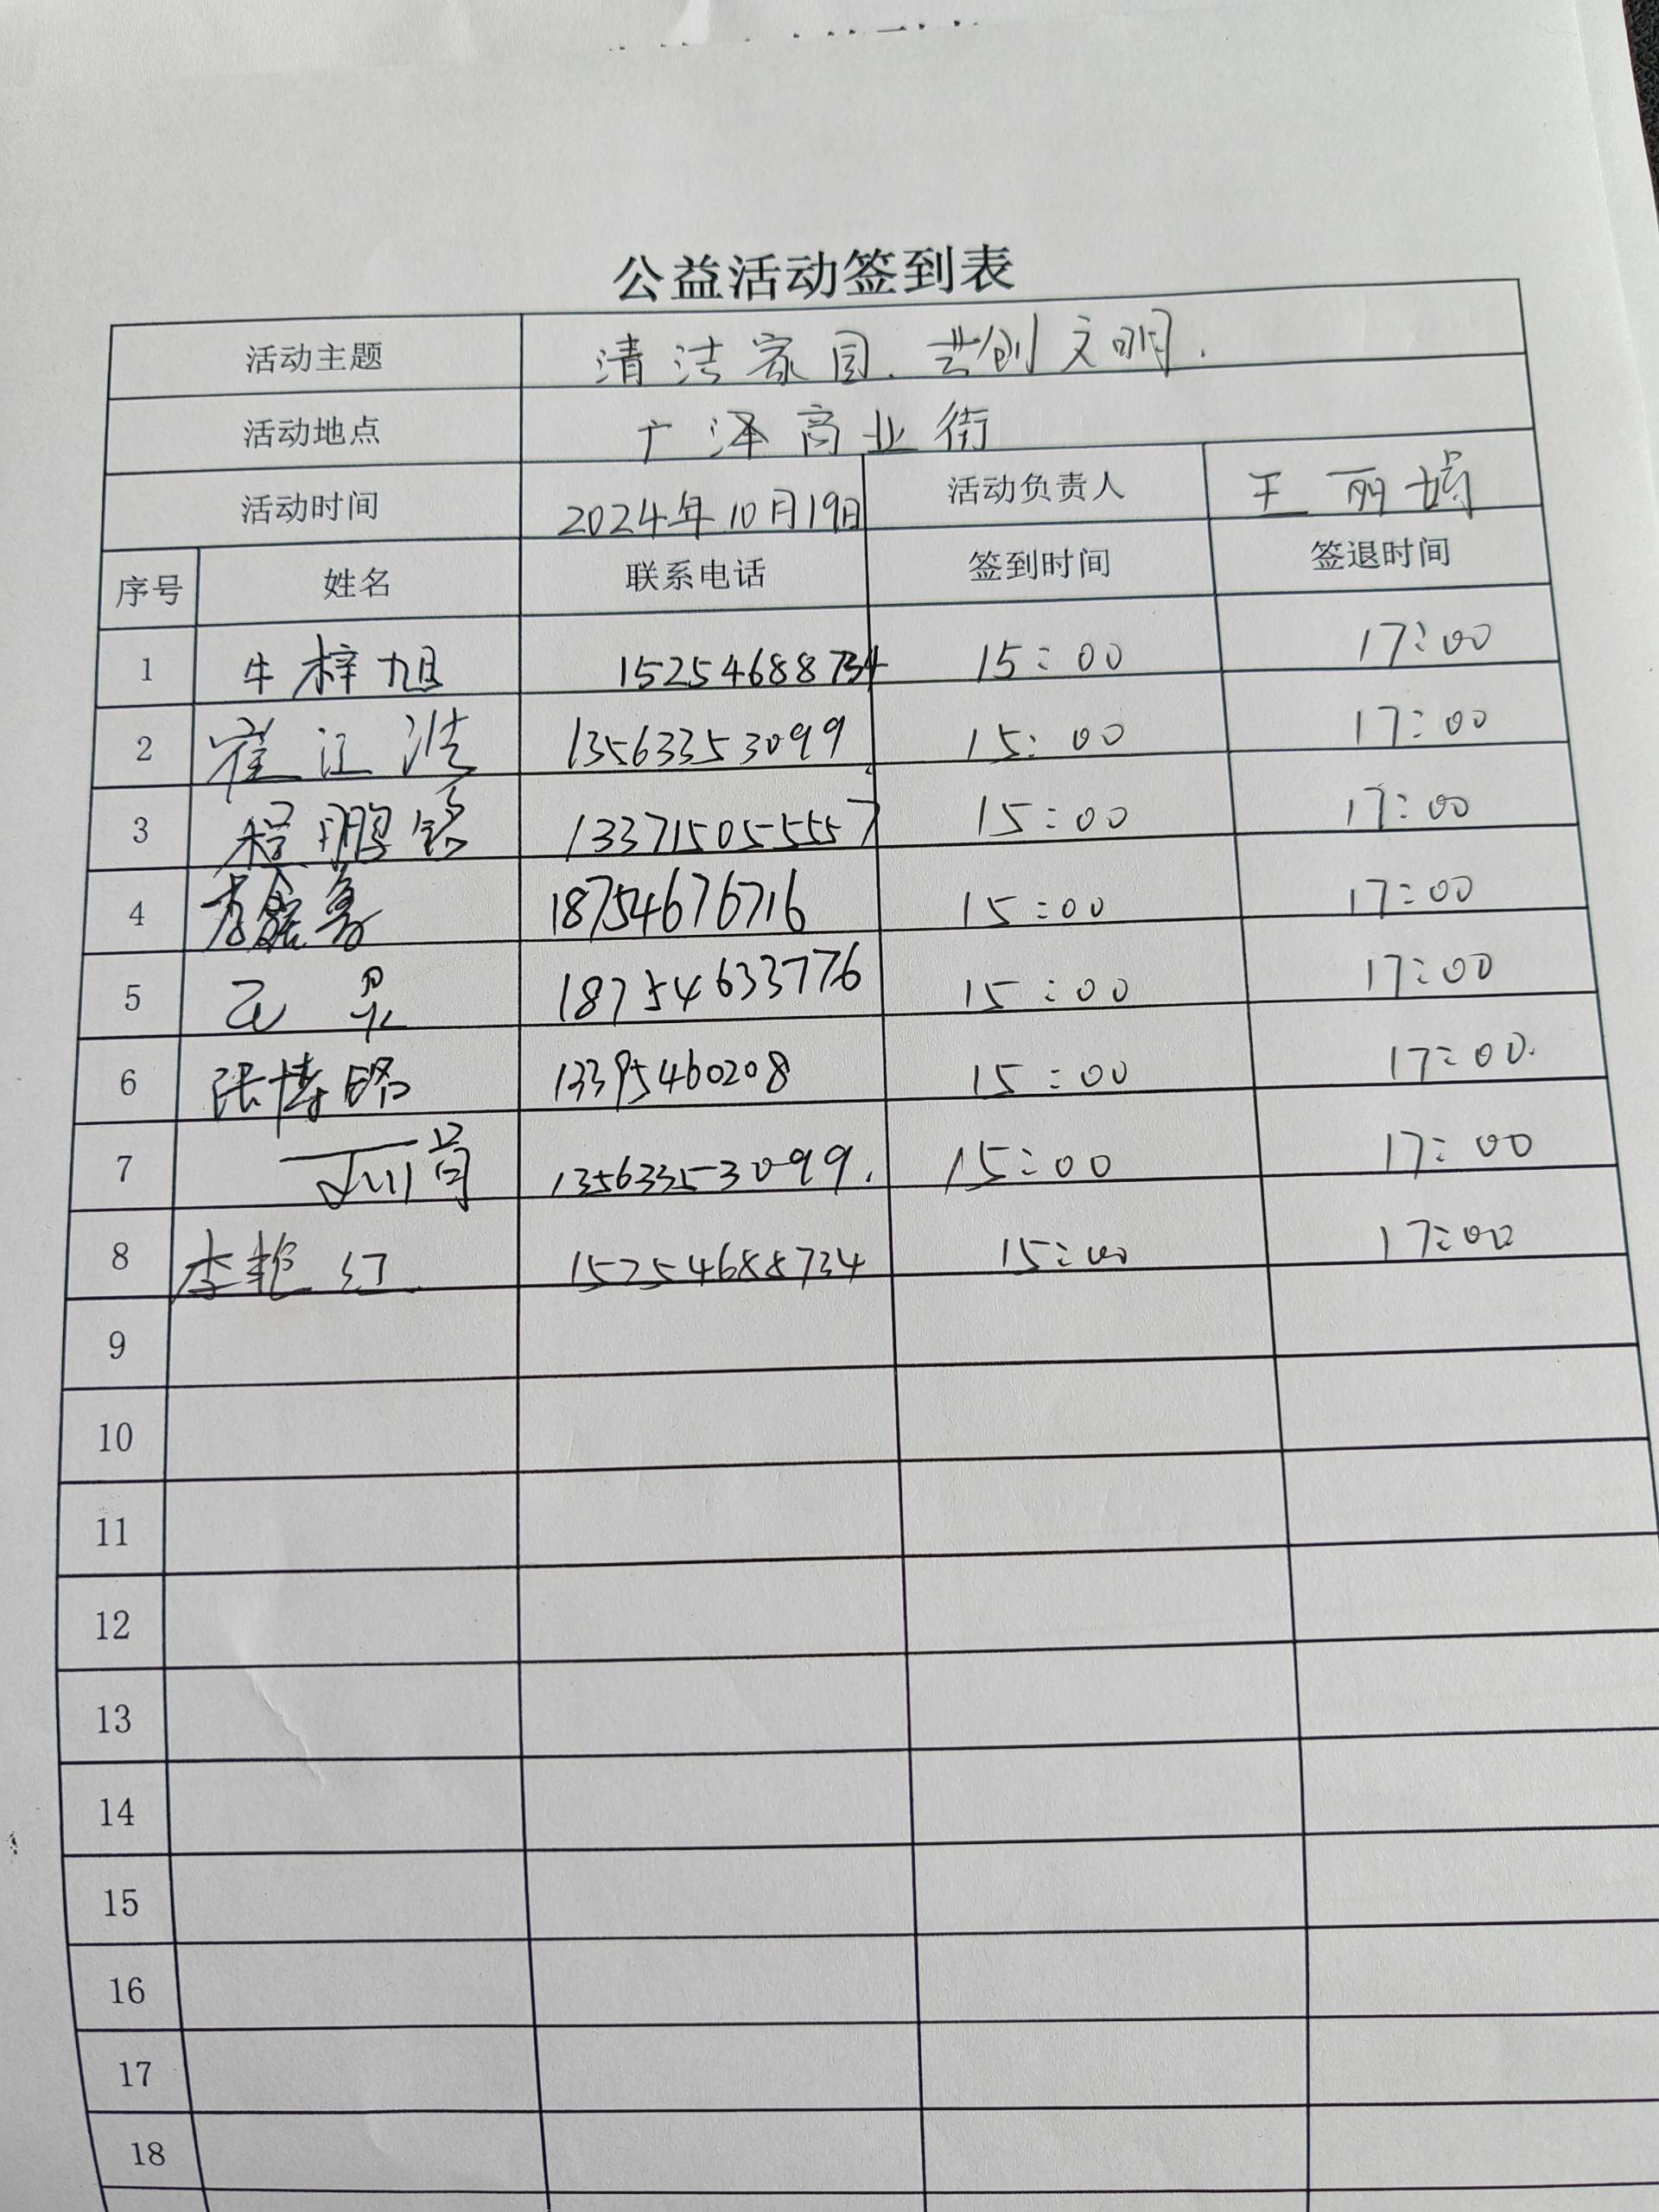 公益活动签到表
活动主题 清洁家园.共创文明.
活动地点 广泽商业街
活动时间 2024年10月19日 活动负责人 王丽娟
序号 姓名 联系电话 签到时间 签退时间
1 牛梓旭 15254688734 15:00 17:00
2 崔江浩 13563353099 15:00 17:00
3 程鹏铭 13371505557 15:00 17:00
4 18754676716 15:00 17:00
5 18754633776 15:00 17:00
6 张博铭 13395460208 15:00 17:00
7 13563353099. 15:00 17:00
8 李艳红 15254688734 15:00 17:00
9
10
11
12
13
14
15
16
17
18